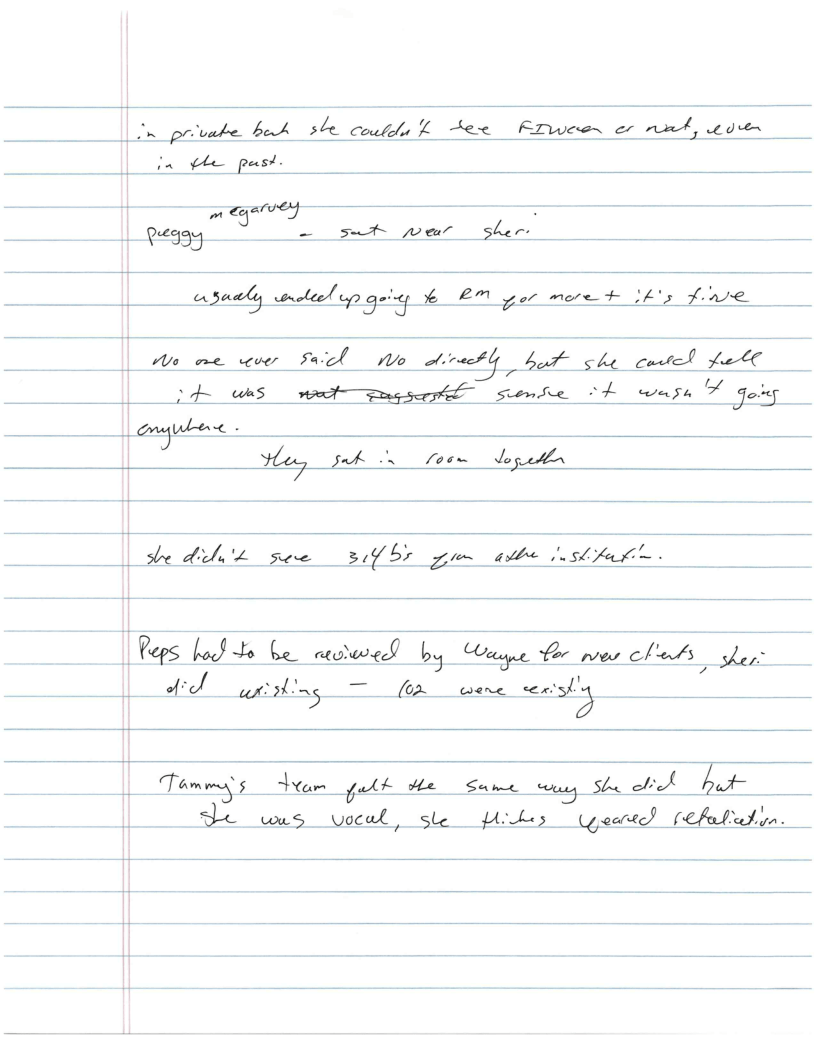 in private bank she couldn't see FINCEN or not, even
in the past.
megarvey
peggy - sat near sheri
usually ended up going to RM for more + it's fine
No one ever said No directly, but she could tell
it was not suggested sense it wasn't going
anywhere.
they sat in room together
she didn't see 314b's from other institution.
Peps had to be reviewed by Wayne for new clients, sheri
did existing - 102 were existing
Tammy's team felt the same way she did but
she was vocal, she thinks feared retaliation.